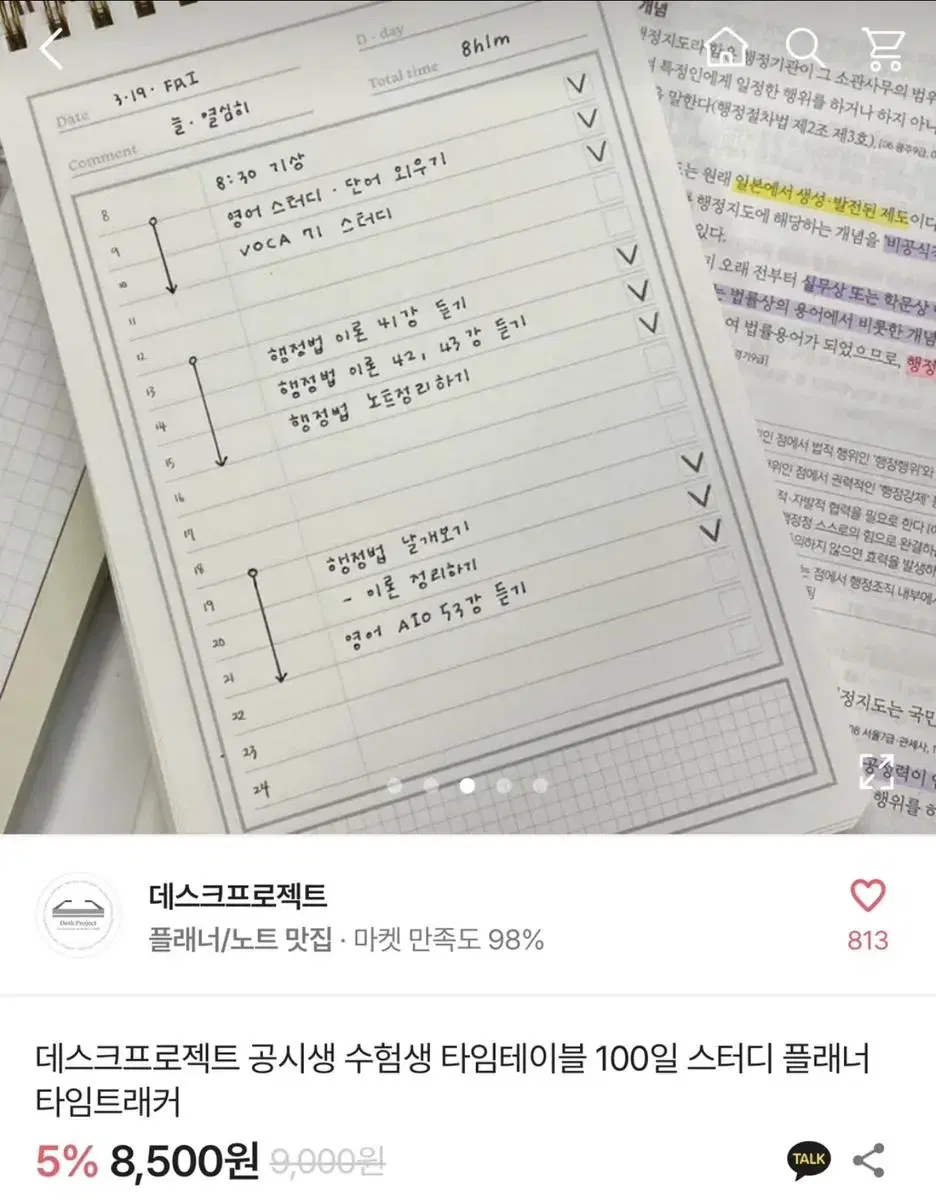 D - day
Date 3.19. FRI
Total time 8h1m
Comment 늘. 열심히
8 8:30 기상
9 영어 스터디 · 단어 외우기
10 VOCA 71 스터디
11
12 행정법 이론 41강 듣기
13 행정법 이론 42, 43강 듣기
14 행정법 노트정리하기
15
16
17
18 행정법 날개보기
19 - 이론 정리하기
20 영어 AIO 53강 듣기
21
22
23
24
개념
행정기관이 그 소관사무의 범위
특정인에게 일정한 행위를 하거나 하지 아니
말한다(행정절차법 제2조 제3호).
는 원래 일본에서 생성·발전된 제도이다
행정지도에 해당하는 개념을 '비공식
있다.
오래 전부터 실무상 또는 학문상
는 법률상의 용어에서 비롯한 개념
여 법률용어가 되었으므로, 행정
경기9급]
점에서 법적 행위인 '행정행위'와
위인 점에서 권력적인 '행정강제'
적·자발적 협력을 필요로 한다
행정청 스스로의 힘으로 완결하
의하지 않으면 효력을 발생하
는 점에서 행정조직 내부에서
정지도는 국민
행위를 하
Desk Project
데스크프로젝트
플래너/노트 맛집 · 마켓 만족도 98%
813
데스크프로젝트 공시생 수험생 타임테이블 100일 스터디 플래너
타임트래커
5% 8,500원 9,000원
TALK